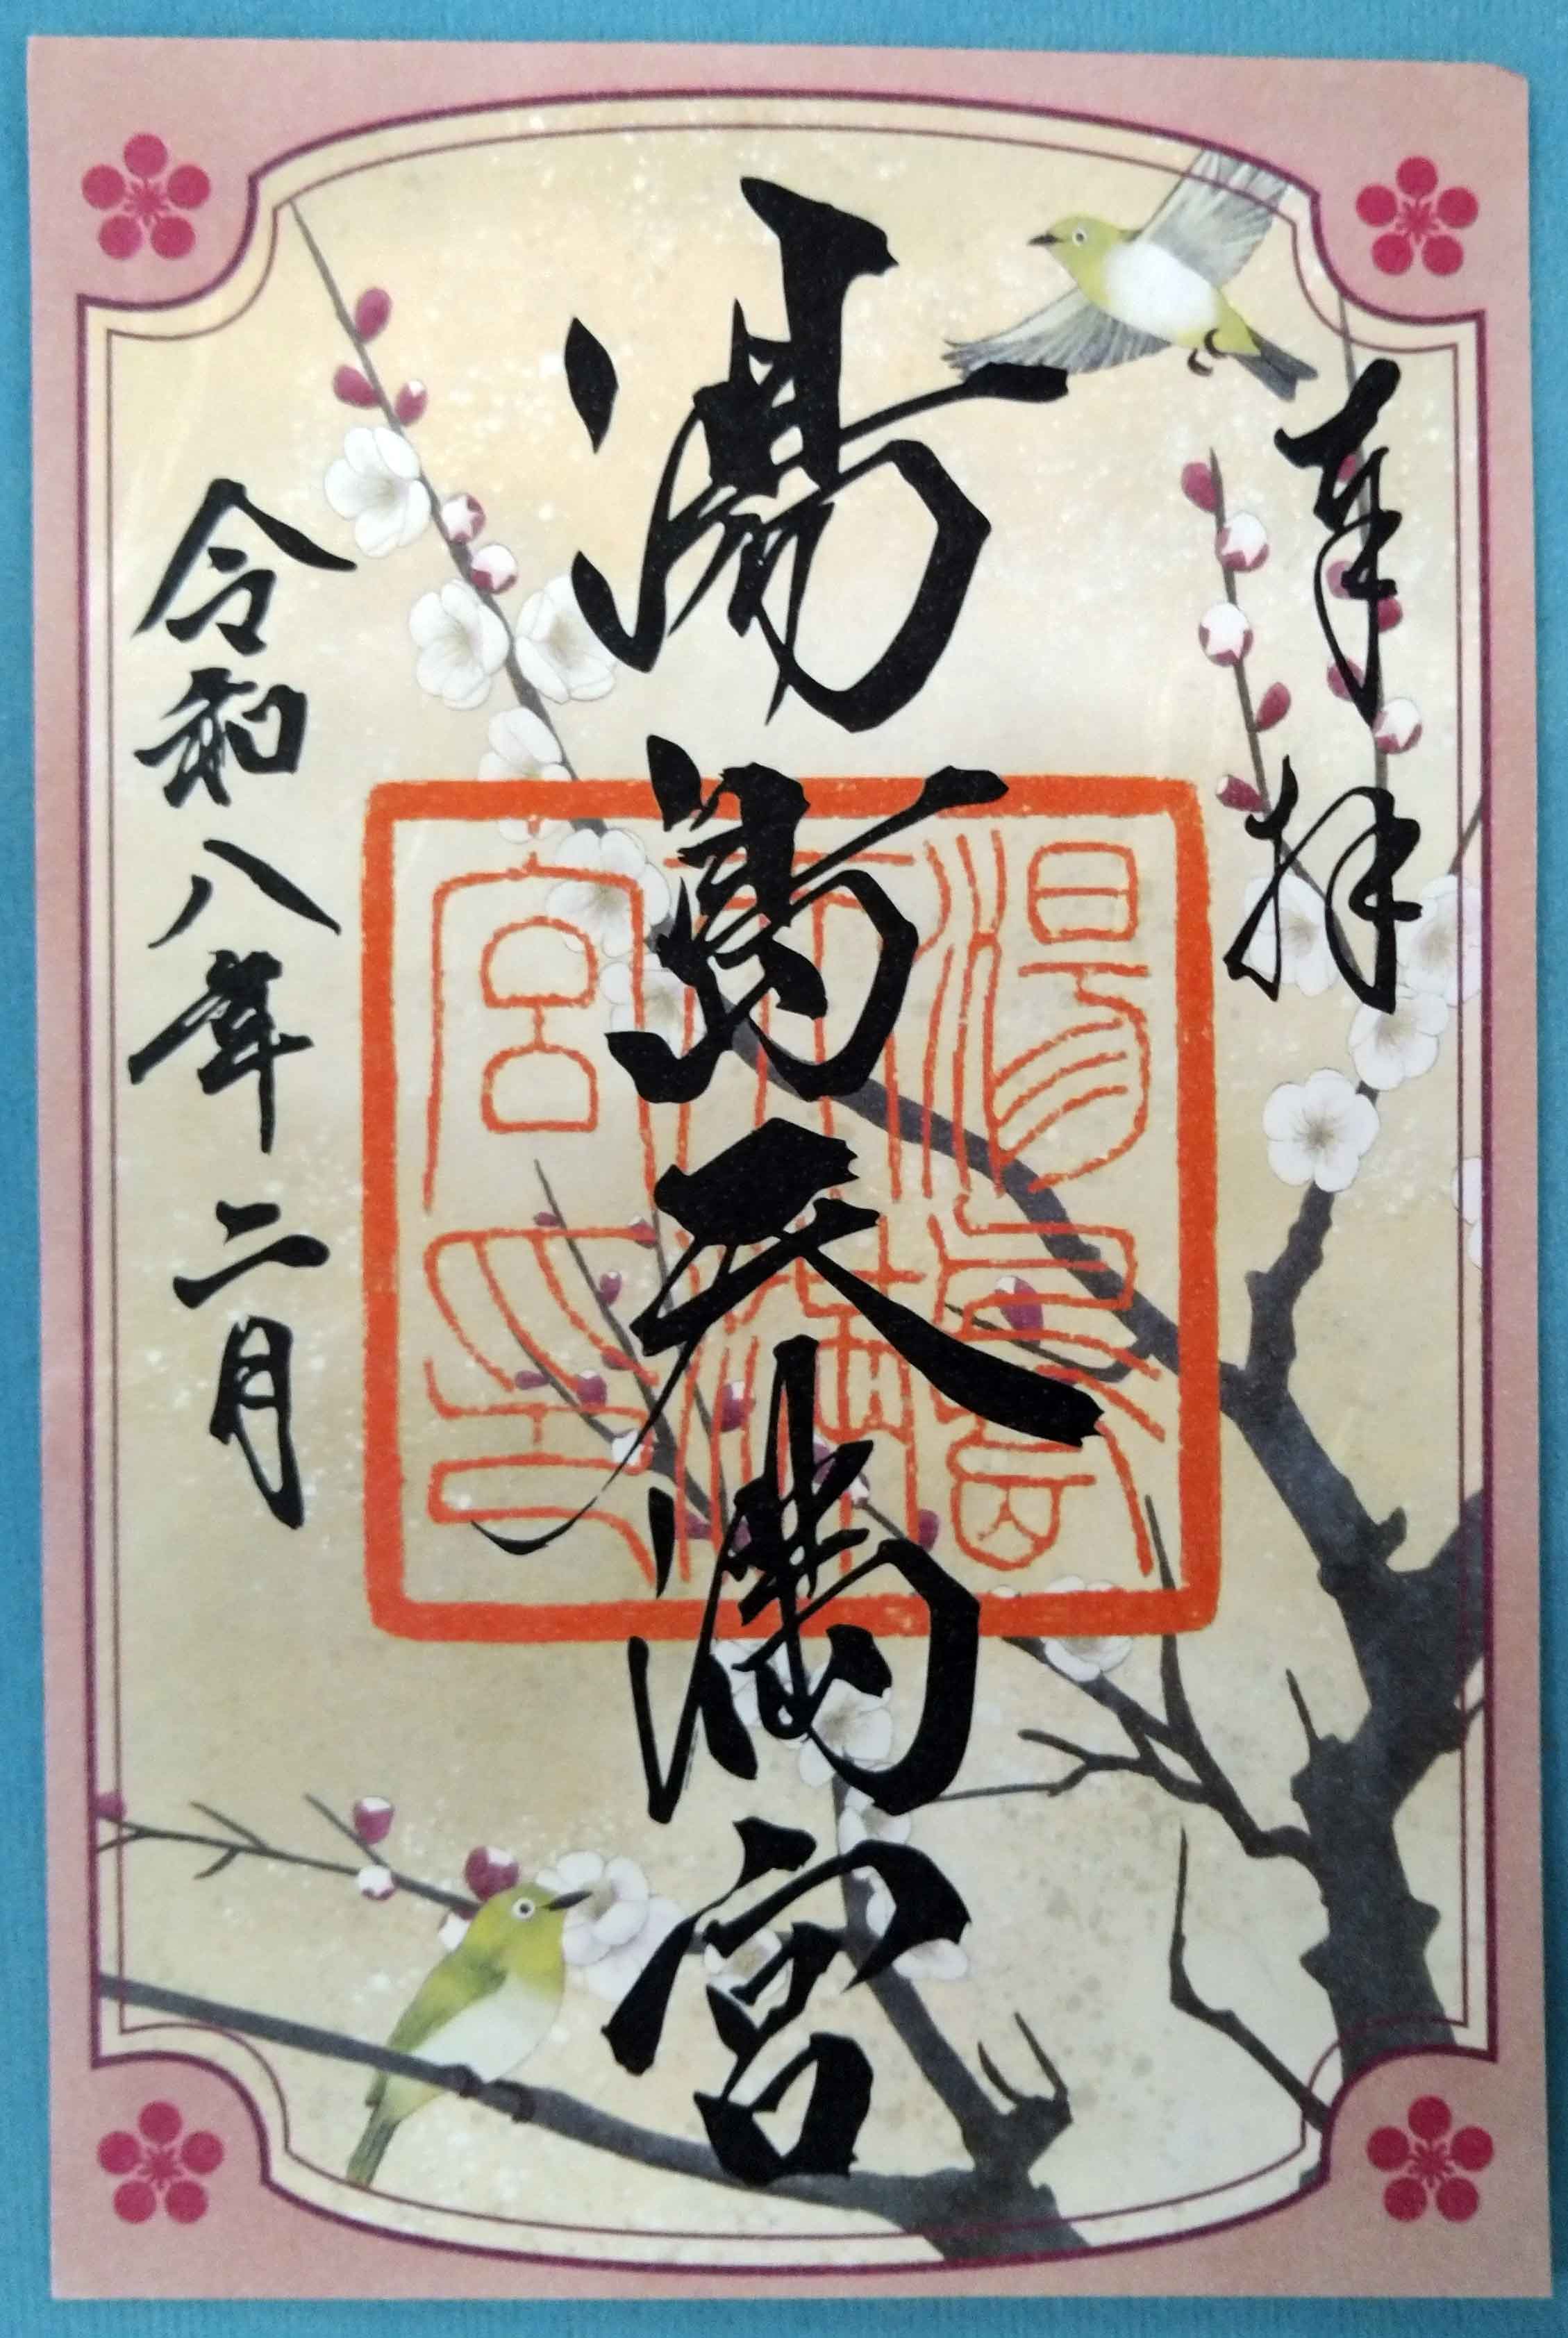 奉拝
湯島天満宮
湯島天満宮印
令和八年二月